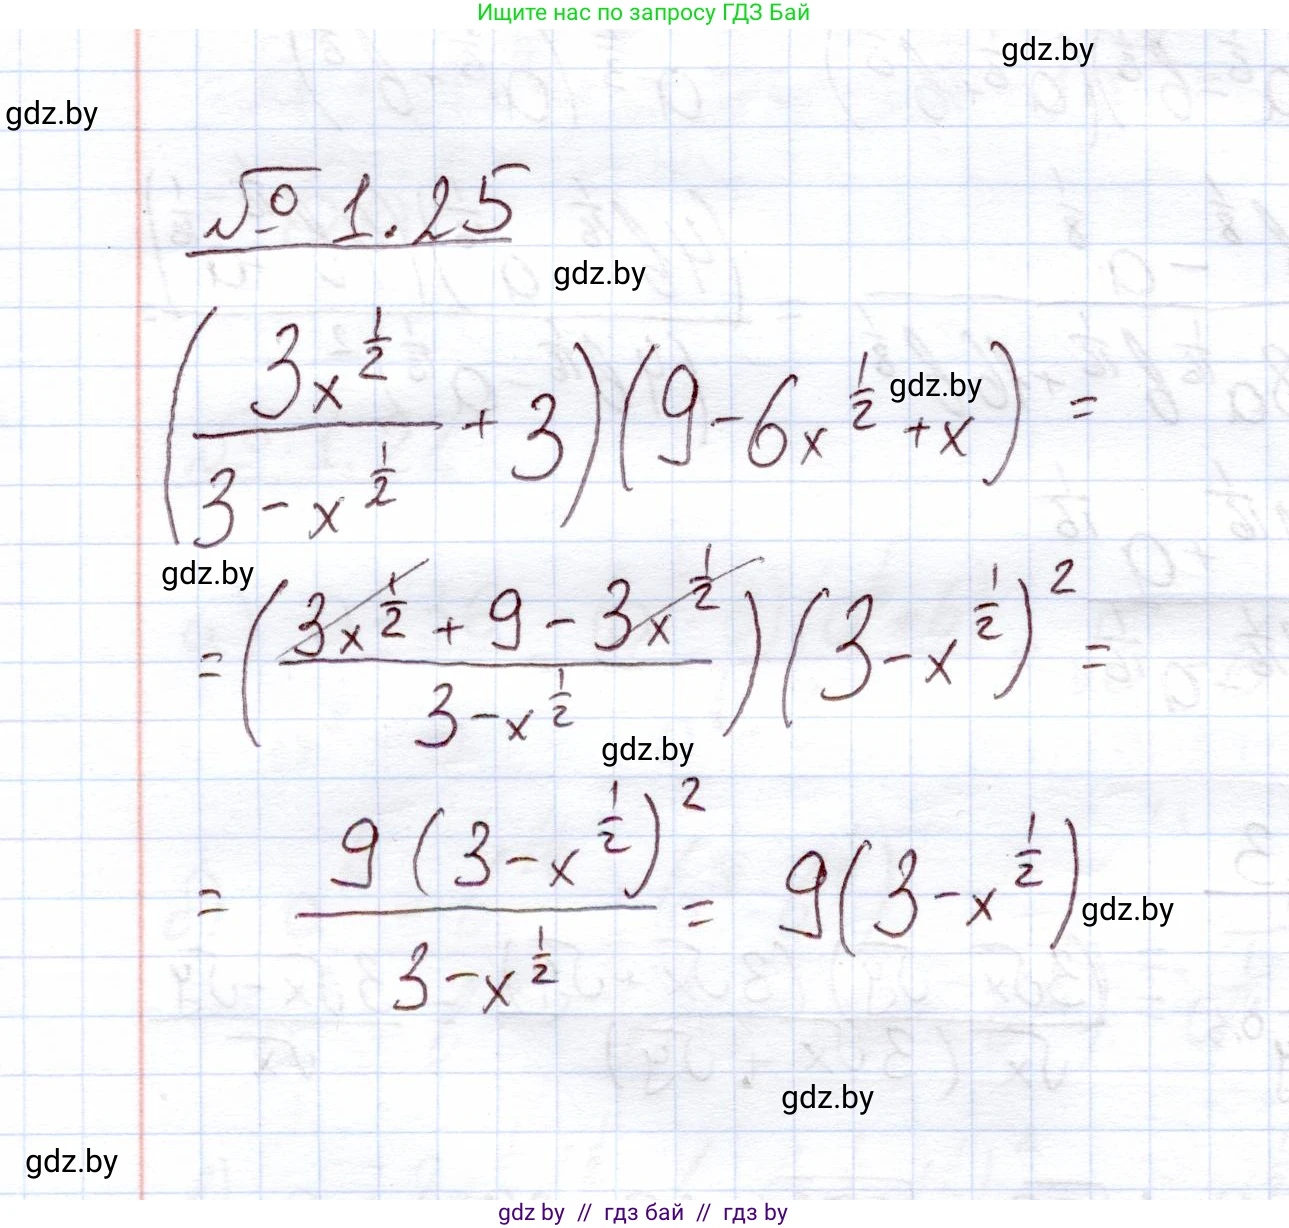 Ищите нас по запросу ГДЗ Бай
gdz.by
gdz.by
№ 1.25
gdz.by
(3x^(1/2) / (3 - x^(1/2)) + 3)(9 - 6x^(1/2) + x) =
gdz.by
gdz.by
= ((3x^(1/2) + 9 - 3x^(1/2)) / (3 - x^(1/2)))(3 - x^(1/2))^2 =
gdz.by
= 9(3 - x^(1/2))^2 / (3 - x^(1/2)) = 9(3 - x^(1/2))
gdz.by
gdz.by
gdz.by
gdz by // гдз бай // гдз by